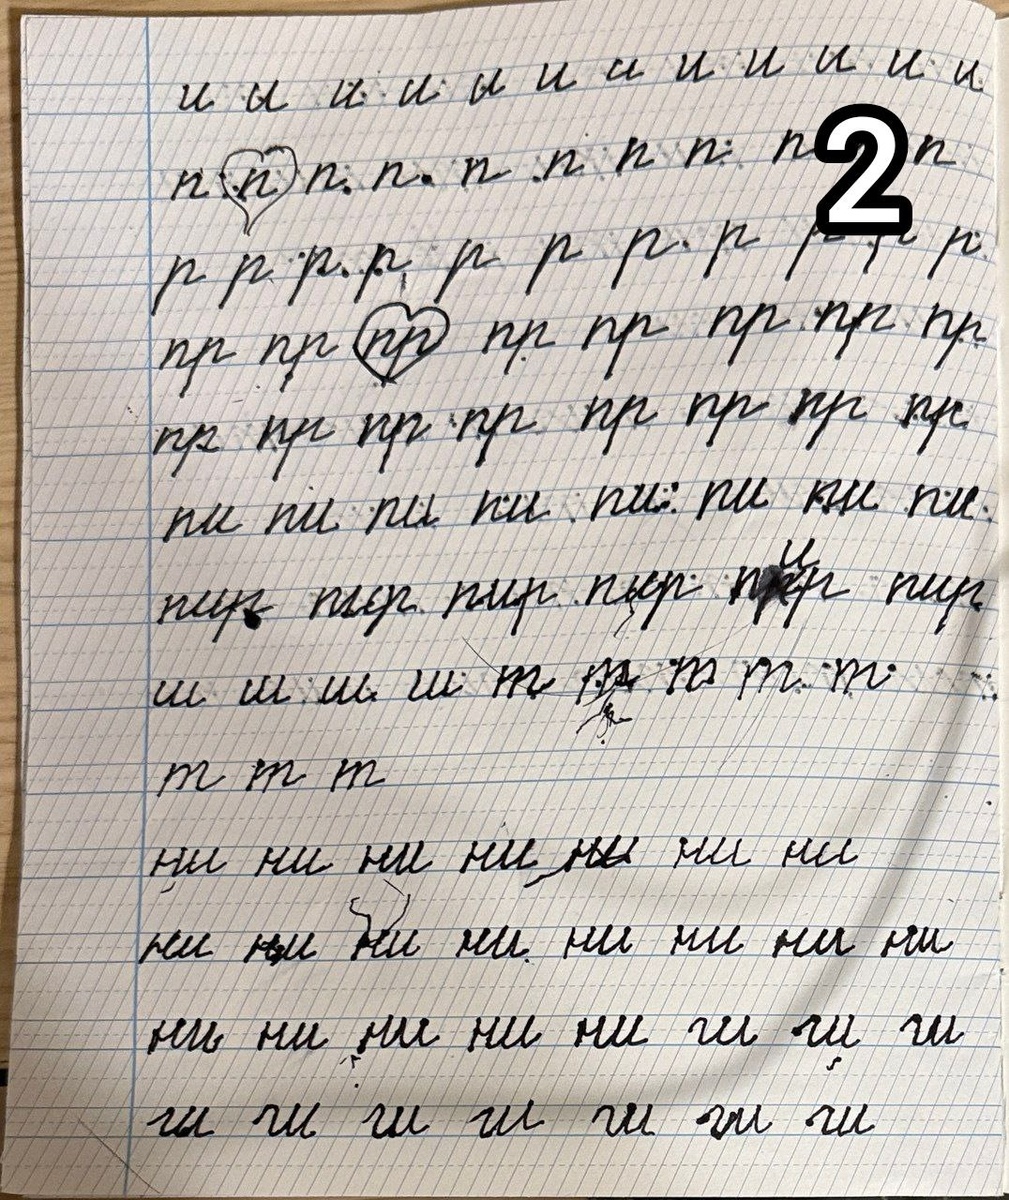 и и и и и и и и и и и и
п п п п п п п п п п
2
р р р р р р р р р р р
пр пр пр пр пр пр пр пр
пр пр пр пр пр пр пр пр
пи пи пи пи пи пи пи пи
пир пир пир пир пир пир
ш ш ш ш т т т т т
т т т
ни ни ни ни ни ни ни
ни ни ни ни ни ни ни ни
ни ни ни ни ни ги ги ги
ги ги ги ги ги ги ги